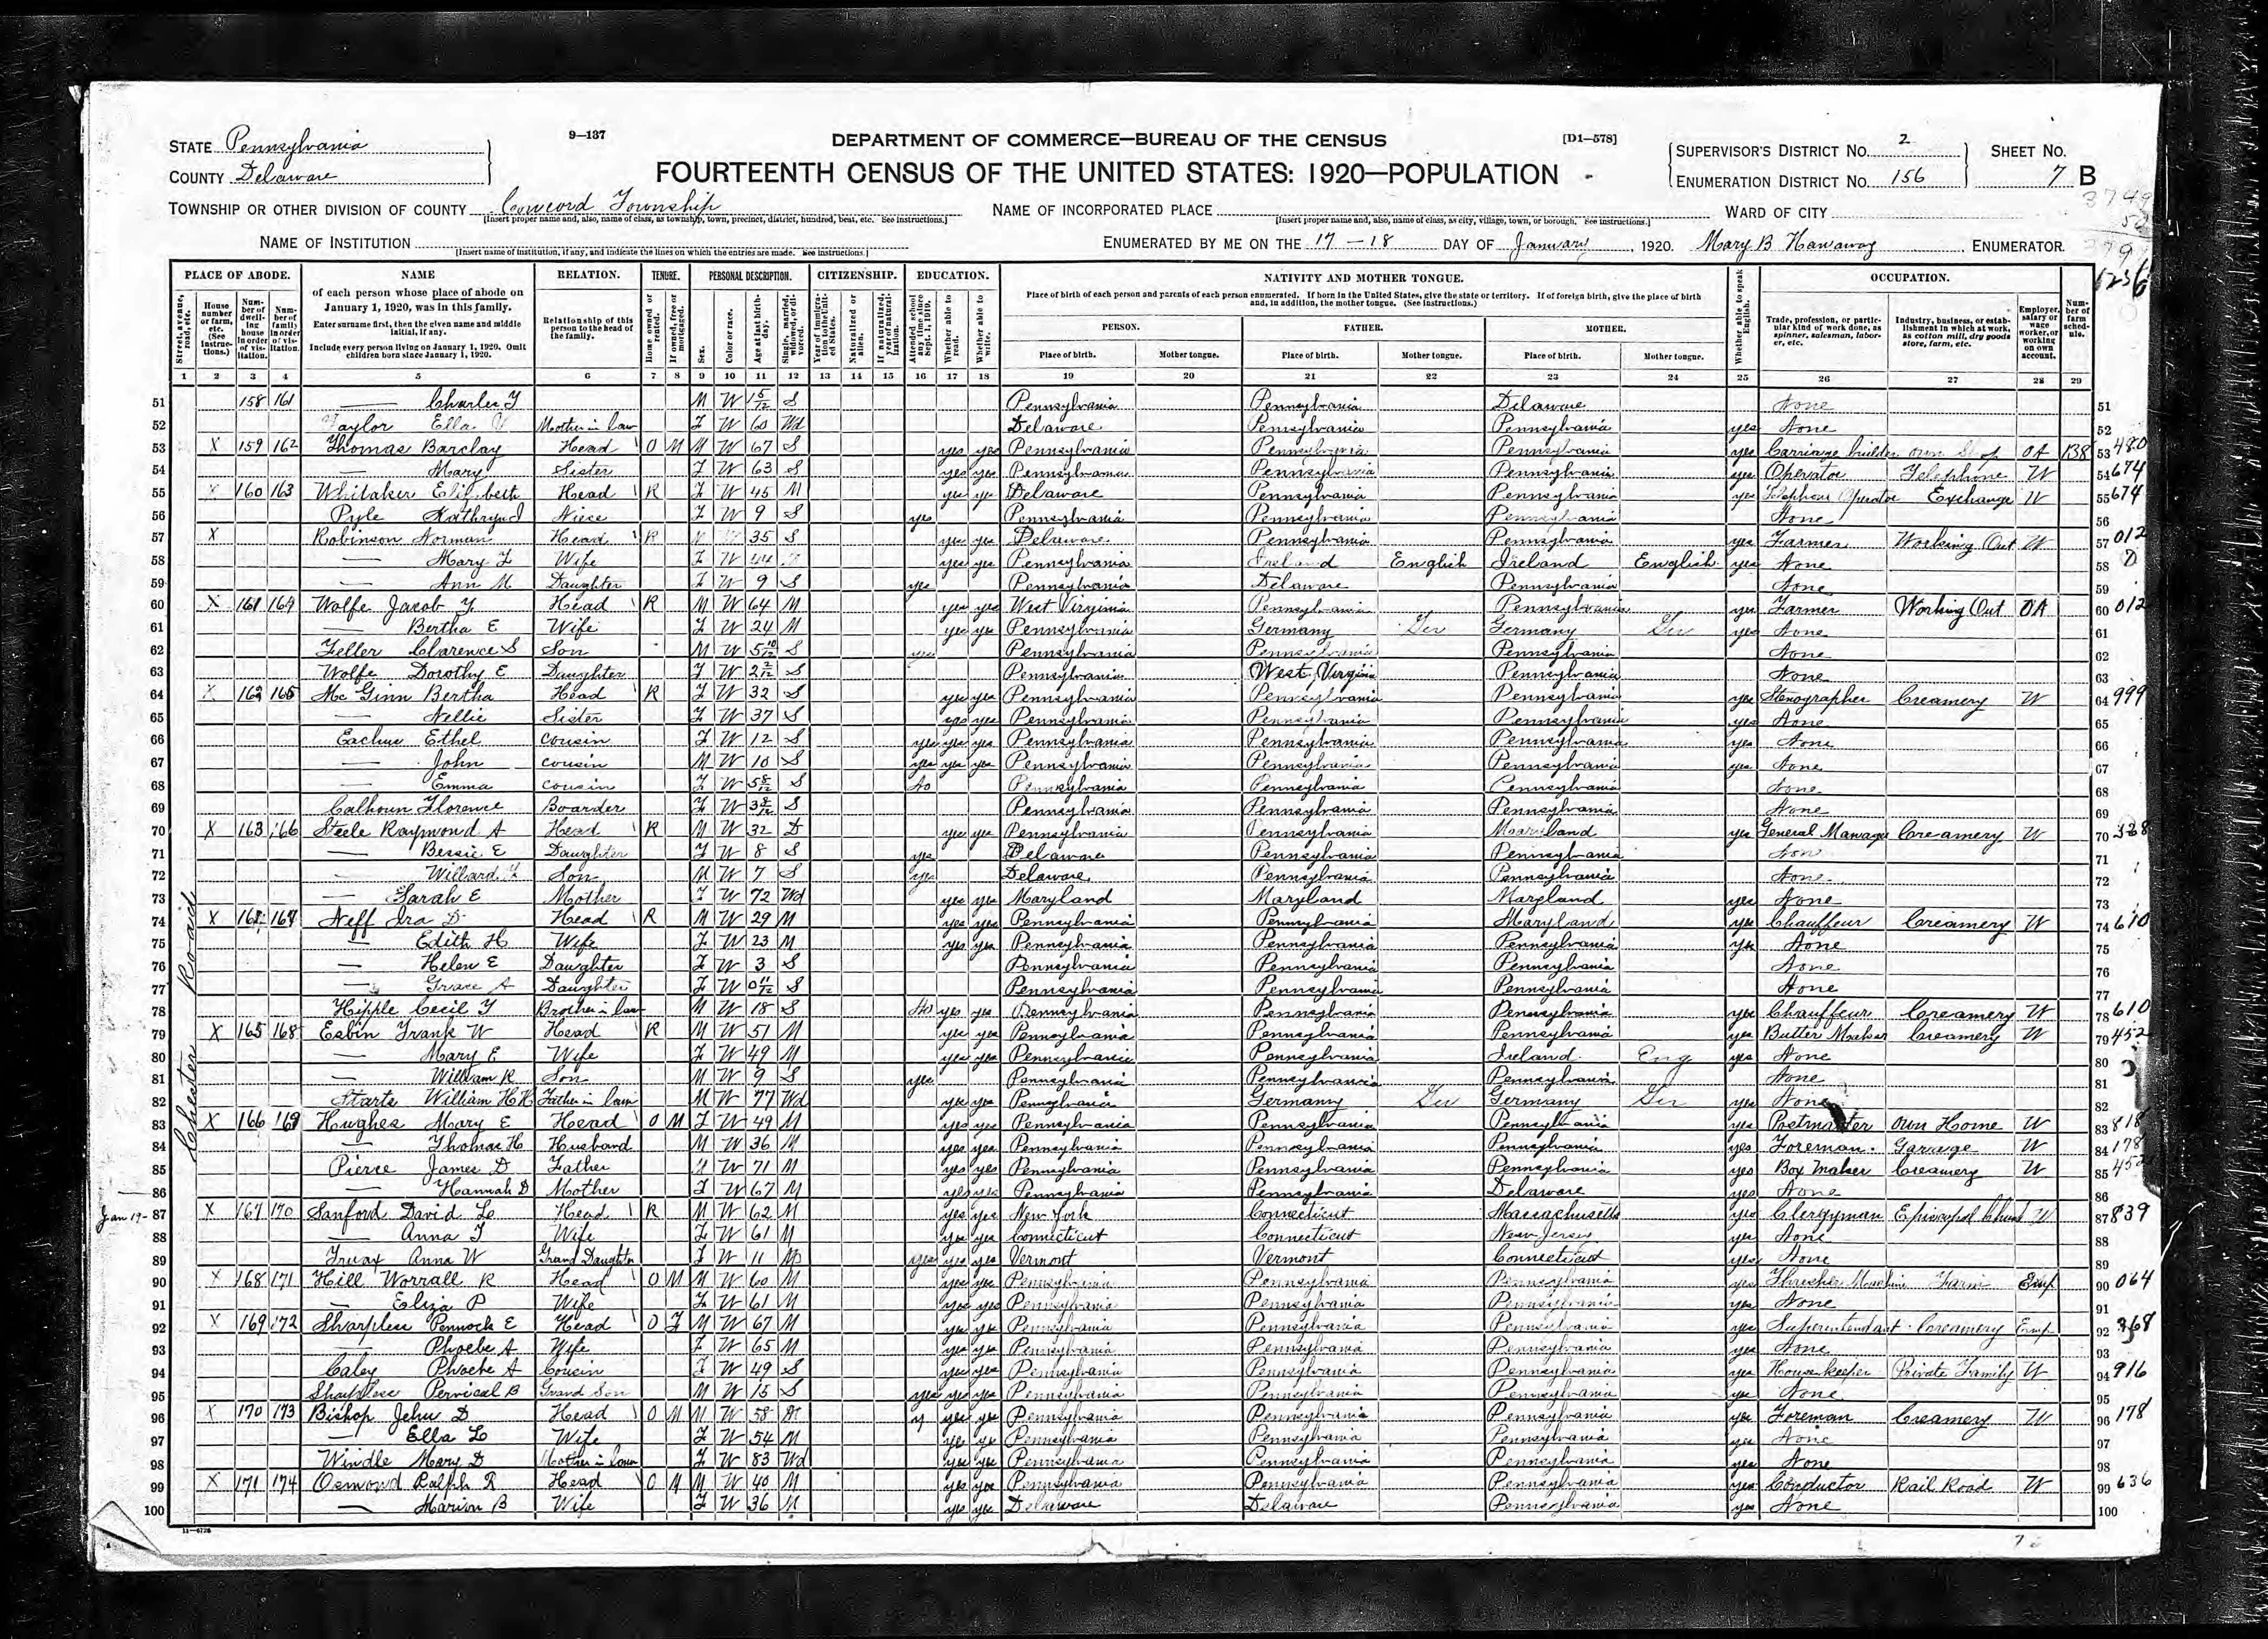 9—137 DEPARTMENT OF COMMERCE—BUREAU OF THE CENSUS [D1—578]
STATE Pennsylvania
COUNTY Delaware
FOURTEENTH CENSUS OF THE UNITED STATES: 1920—POPULATION
SUPERVISOR'S DISTRICT No. 2 SHEET No.
ENUMERATION DISTRICT No. 156 7 B
TOWNSHIP OR OTHER DIVISION OF COUNTY Concord Township NAME OF INCORPORATED PLACE WARD OF CITY
[Insert proper name and, also, name of class, as township, town, precinct, district, hundred, beat, etc. See instructions.] [Insert proper name and, also, name of class, as city, village, town, or borough. See instructions.]
NAME OF INSTITUTION ENUMERATED BY ME ON THE 17 – 18 DAY OF January, 1920. Mary B Hanaway ENUMERATOR.
[Insert name of institution, if any, and indicate the lines on which the entries are made. See instructions.]
PLACE OF ABODE. NAME RELATION. TENURE. PERSONAL DESCRIPTION. CITIZENSHIP. EDUCATION. NATIVITY AND MOTHER TONGUE. OCCUPATION.
1 2 3 4 5 6 7 8 9 10 11 12 13 14 15 16 17 18 19 20 21 22 23 24 25 26 27 28 29
51 158 161 — Charles T M W 1 5/12 S Pennsylvania Pennsylvania Delaware None 51
52 Taylor Ella Mother in law F W 60 Wd Delaware Pennsylvania Pennsylvania yes None 52
53 X 159 162 Thomas Barclay Head O M M W 67 S yes yes Pennsylvania Pennsylvania Pennsylvania yes Carriage builder own Shop OA 138 53 480
54 — Mary Sister F W 63 S yes yes Pennsylvania Pennsylvania Pennsylvania yes Operator Telephone W 54 674
55 X 160 163 Whitaker Elizabeth Head R F W 45 M yes yes Delaware Pennsylvania Pennsylvania yes Telephone Operator Exchange W 55 674
56 Pyle Kathryn I Niece F W 9 S yes Pennsylvania Pennsylvania Pennsylvania None 56
57 X Robinson Norman Head R W 35 S yes yes Delaware Pennsylvania Pennsylvania yes Farmer Working Out W 57 012
58 — Mary F Wife F W 44 yes yes Pennsylvania Ireland English Ireland English yes None 58
59 — Ann M Daughter F W 9 S yes Pennsylvania Delaware Pennsylvania None 59
60 X 161 164 Wolfe Jacob Y Head R M W 64 M yes yes West Virginia Pennsylvania Pennsylvania yes Farmer Working Out OA 60 012
61 — Bertha E Wife F W 24 M yes yes Pennsylvania Germany Ger Germany Ger yes None 61
62 Feller Clarence S Son M W 5 10/12 S yes Pennsylvania Pennsylvania Pennsylvania None 62
63 Wolfe Dorothy E Daughter F W 2 2/12 S Pennsylvania West Virginia Pennsylvania None 63
64 X 162 165 Mc Ginn Bertha Head R F W 32 S yes yes Pennsylvania Pennsylvania Pennsylvania yes Stenographer Creamery W 64 999
65 — Nellie Sister F W 37 S yes yes Pennsylvania Pennsylvania Pennsylvania yes None 65
66 Eachus Ethel cousin F W 12 S yes yes yes Pennsylvania Pennsylvania Pennsylvania yes None 66
67 — John cousin M W 10 S yes yes yes Pennsylvania Pennsylvania Pennsylvania yes None 67
68 — Emma cousin F W 5 8/12 S No Pennsylvania Pennsylvania Pennsylvania None 68
69 Calhoun Florence Boarder F W 3 8/12 S Pennsylvania Pennsylvania Pennsylvania None 69
70 X 163 166 Steele Raymond A Head R M W 32 D yes yes Pennsylvania Pennsylvania Maryland yes General Manager Creamery W 70 328
71 — Bessie E Daughter F W 8 S yes Delaware Pennsylvania Pennsylvania None 71
72 — Willard Son M W 7 S yes Delaware Pennsylvania Pennsylvania None 72
73 — Sarah E Mother F W 72 Wd yes yes Maryland Maryland Maryland yes None 73
74 X 164 167 Neff Ira D Head R M W 29 M yes yes Pennsylvania Pennsylvania Maryland yes Chauffeur Creamery W 74 610
75 — Edith H Wife F W 23 M yes yes Pennsylvania Pennsylvania Pennsylvania yes None 75
76 — Helen E Daughter F W 3 S Pennsylvania Pennsylvania Pennsylvania None 76
77 — Grace A Daughter F W 0 11/12 S Pennsylvania Pennsylvania Pennsylvania None 77
78 Hipple Cecil Y Brother in law M W 18 S No yes yes Pennsylvania Pennsylvania Pennsylvania yes Chauffeur Creamery W 78 610
79 X 165 168 Esbin Frank W Head R M W 51 M yes yes Pennsylvania Pennsylvania Pennsylvania yes Butter Maker Creamery W 79 452
80 — Mary E Wife F W 49 M yes yes Pennsylvania Pennsylvania Ireland Eng yes None 80
81 — William R Son M W 9 S yes Pennsylvania Pennsylvania Pennsylvania None 81
82 Starts William H H Father in law M W 77 Wd yes yes Pennsylvania Germany Ger Germany Ger yes None 82
83 X 166 169 Hughes Mary E Head O M F W 49 M yes yes Pennsylvania Pennsylvania Pennsylvania yes Postmaster Own Home W 83 818
84 — Thomas H Husband M W 36 M yes yes Pennsylvania Pennsylvania Pennsylvania yes Foreman Garage W 84 178
85 Pierce James D Father M W 71 M yes yes Pennsylvania Pennsylvania Pennsylvania yes Box Maker Creamery W 85 452
86 — Hannah D Mother F W 67 M yes yes Pennsylvania Pennsylvania Delaware yes None 86
Jan 19 - 87 X 167 170 Sanford David L Head R M W 62 M yes yes New York Connecticut Massachusetts yes Clergyman Episcopal Church W 87 839
88 — Anna F Wife F W 61 M yes yes Connecticut Connecticut New Jersey yes None 88
89 Truax Anna W Grand Daughter F W 11 yes yes yes Vermont Vermont Connecticut yes None 89
90 X 168 171 Hill Worrall R Head O M M W 60 M yes yes Pennsylvania Pennsylvania Pennsylvania yes Thresher Machine Farm Emp 90 064
91 — Eliza P Wife F W 61 M yes yes Pennsylvania Pennsylvania Pennsylvania yes None 91
92 X 169 172 Sharpless Pennock E Head O F M W 67 M yes yes Pennsylvania Pennsylvania Pennsylvania yes Superintendant Creamery Emp 92 368
93 — Phoebe A Wife F W 65 M yes yes Pennsylvania Pennsylvania Pennsylvania yes None 93
94 Caley Phoebe A Cousin F W 49 S yes yes Pennsylvania Pennsylvania Pennsylvania yes Housekeeper Private Family W 94 916
95 Sharpless Pervical B Grand Son M W 15 S yes yes yes Pennsylvania Pennsylvania Pennsylvania yes None 95
96 X 170 173 Bishop Jehu D Head O M M W 58 M y yes yes Pennsylvania Pennsylvania Pennsylvania yes Foreman Creamery W 96 178
97 — Ella L Wife F W 54 M yes yes Pennsylvania Pennsylvania Pennsylvania yes None 97
98 Windle Mary D Mother in law F W 83 Wd yes yes Pennsylvania Pennsylvania Pennsylvania yes None 98
99 X 171 174 Osmond Ralph R Head O M M W 40 M yes yes Pennsylvania Pennsylvania Pennsylvania yes Conductor Rail Road W 99 636
100 — Marion B Wife F W 36 M yes yes Delaware Delaware Pennsylvania yes None 100
Chester Road
11—6728